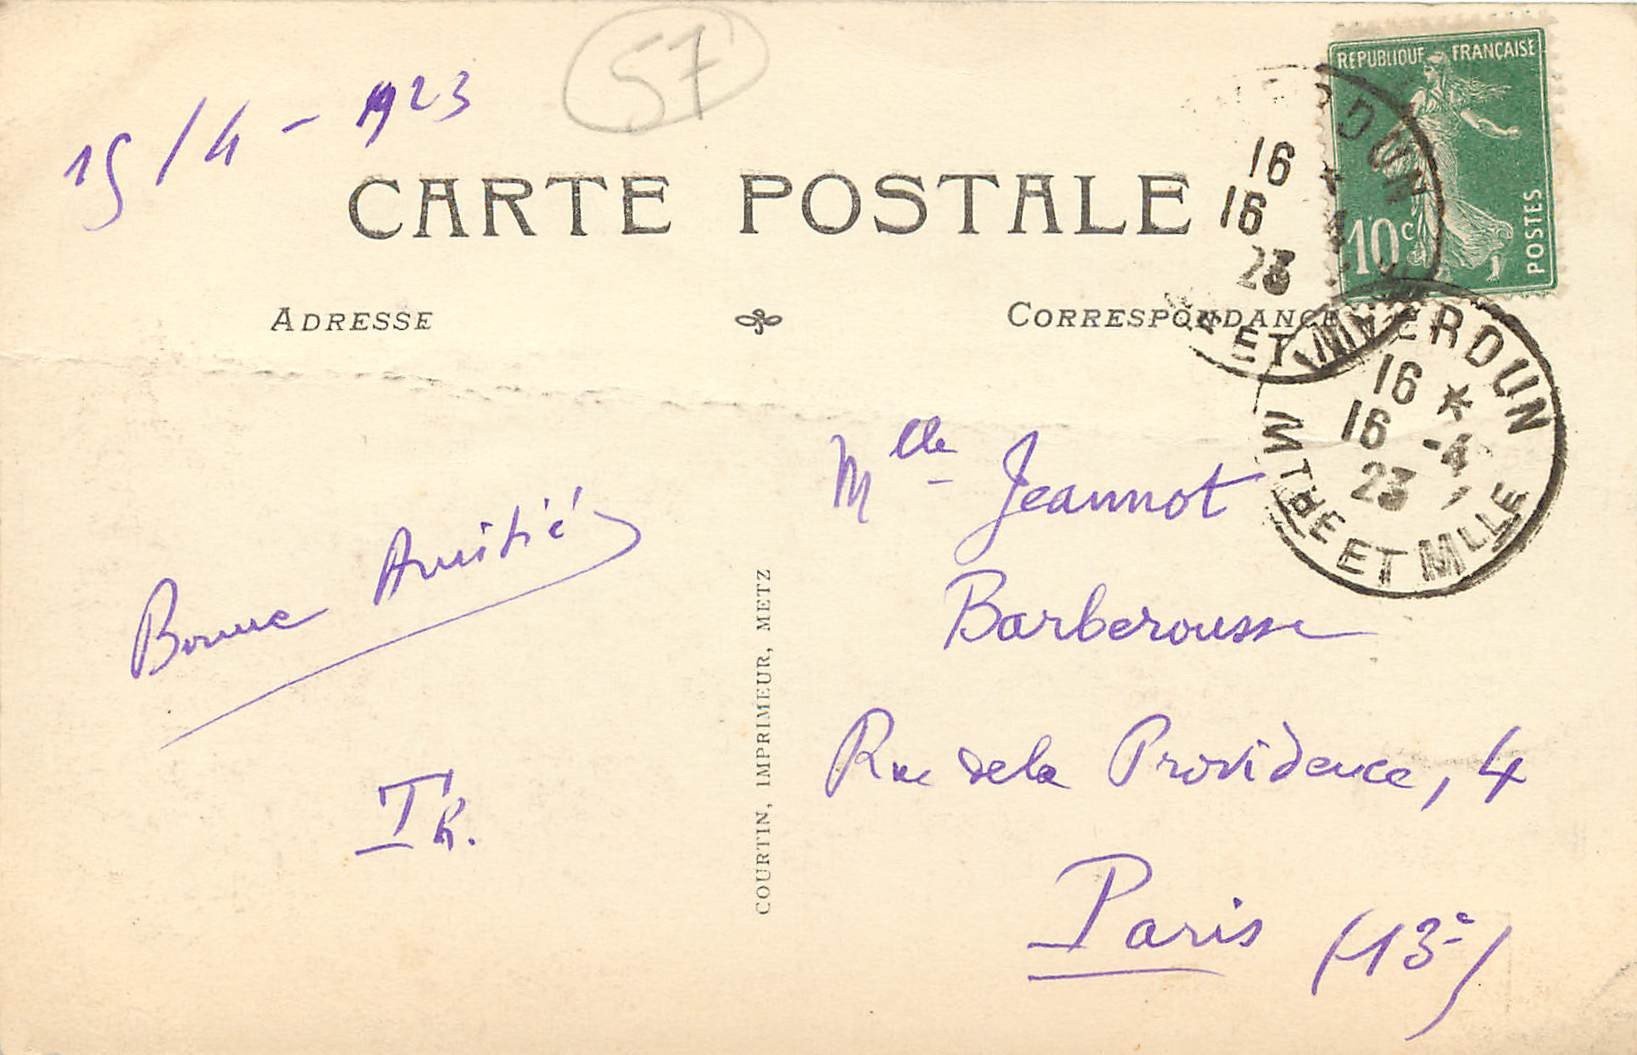 57
15/4-1923
REPUBLIQUE FRANÇAISE
10c
POSTES
CARTE POSTALE
ADRESSE
CORRESPONDANCE
VERDUN
16 *
16 -4
23
MRTHE ET MLLE
VERDUN
16 *
16 -4
23
MRTHE ET MLLE
Bonne Amitié
TK.
COURTIN, IMPRIMEUR, METZ
Mlle Jeannot
Barberousse
Rue de la Providence, 4
Paris (13e)